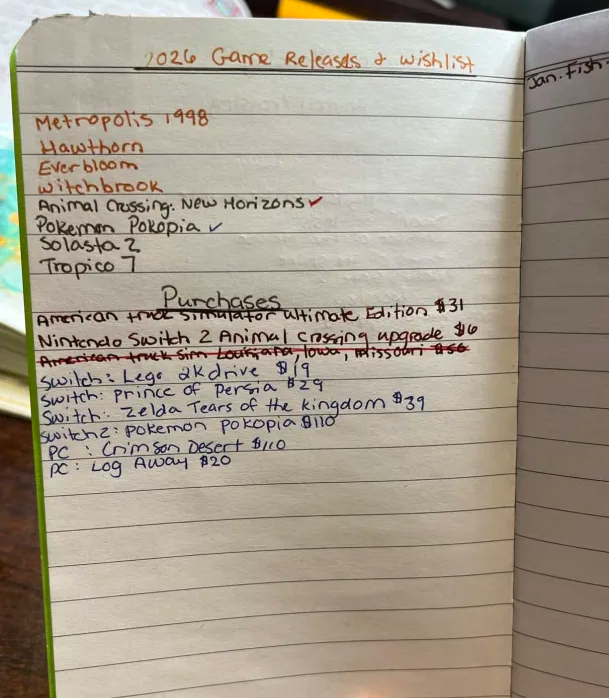 2026 Game Releases & wishlist
Metropolis 1998
Hawthorn
Everbloom
witchbrook
Animal Crossing: New Horizons ✓
Pokemon Pokopia ✓
Solasta 2
Tropico 7
Purchases
American truck simulator ultimate Edition $31
Nintendo Switch 2 Animal crossing upgrade $6
American truck sim Louisiana, Iowa, Missouri $56
Switch: Lego 2K drive $19
Switch: Prince of Persia $29
Switch: Zelda Tears of the kingdom $39
Switch2: Pokemon pokopia $110
PC : Crimson Desert $110
PC : Log Away $20
Jan. Fish